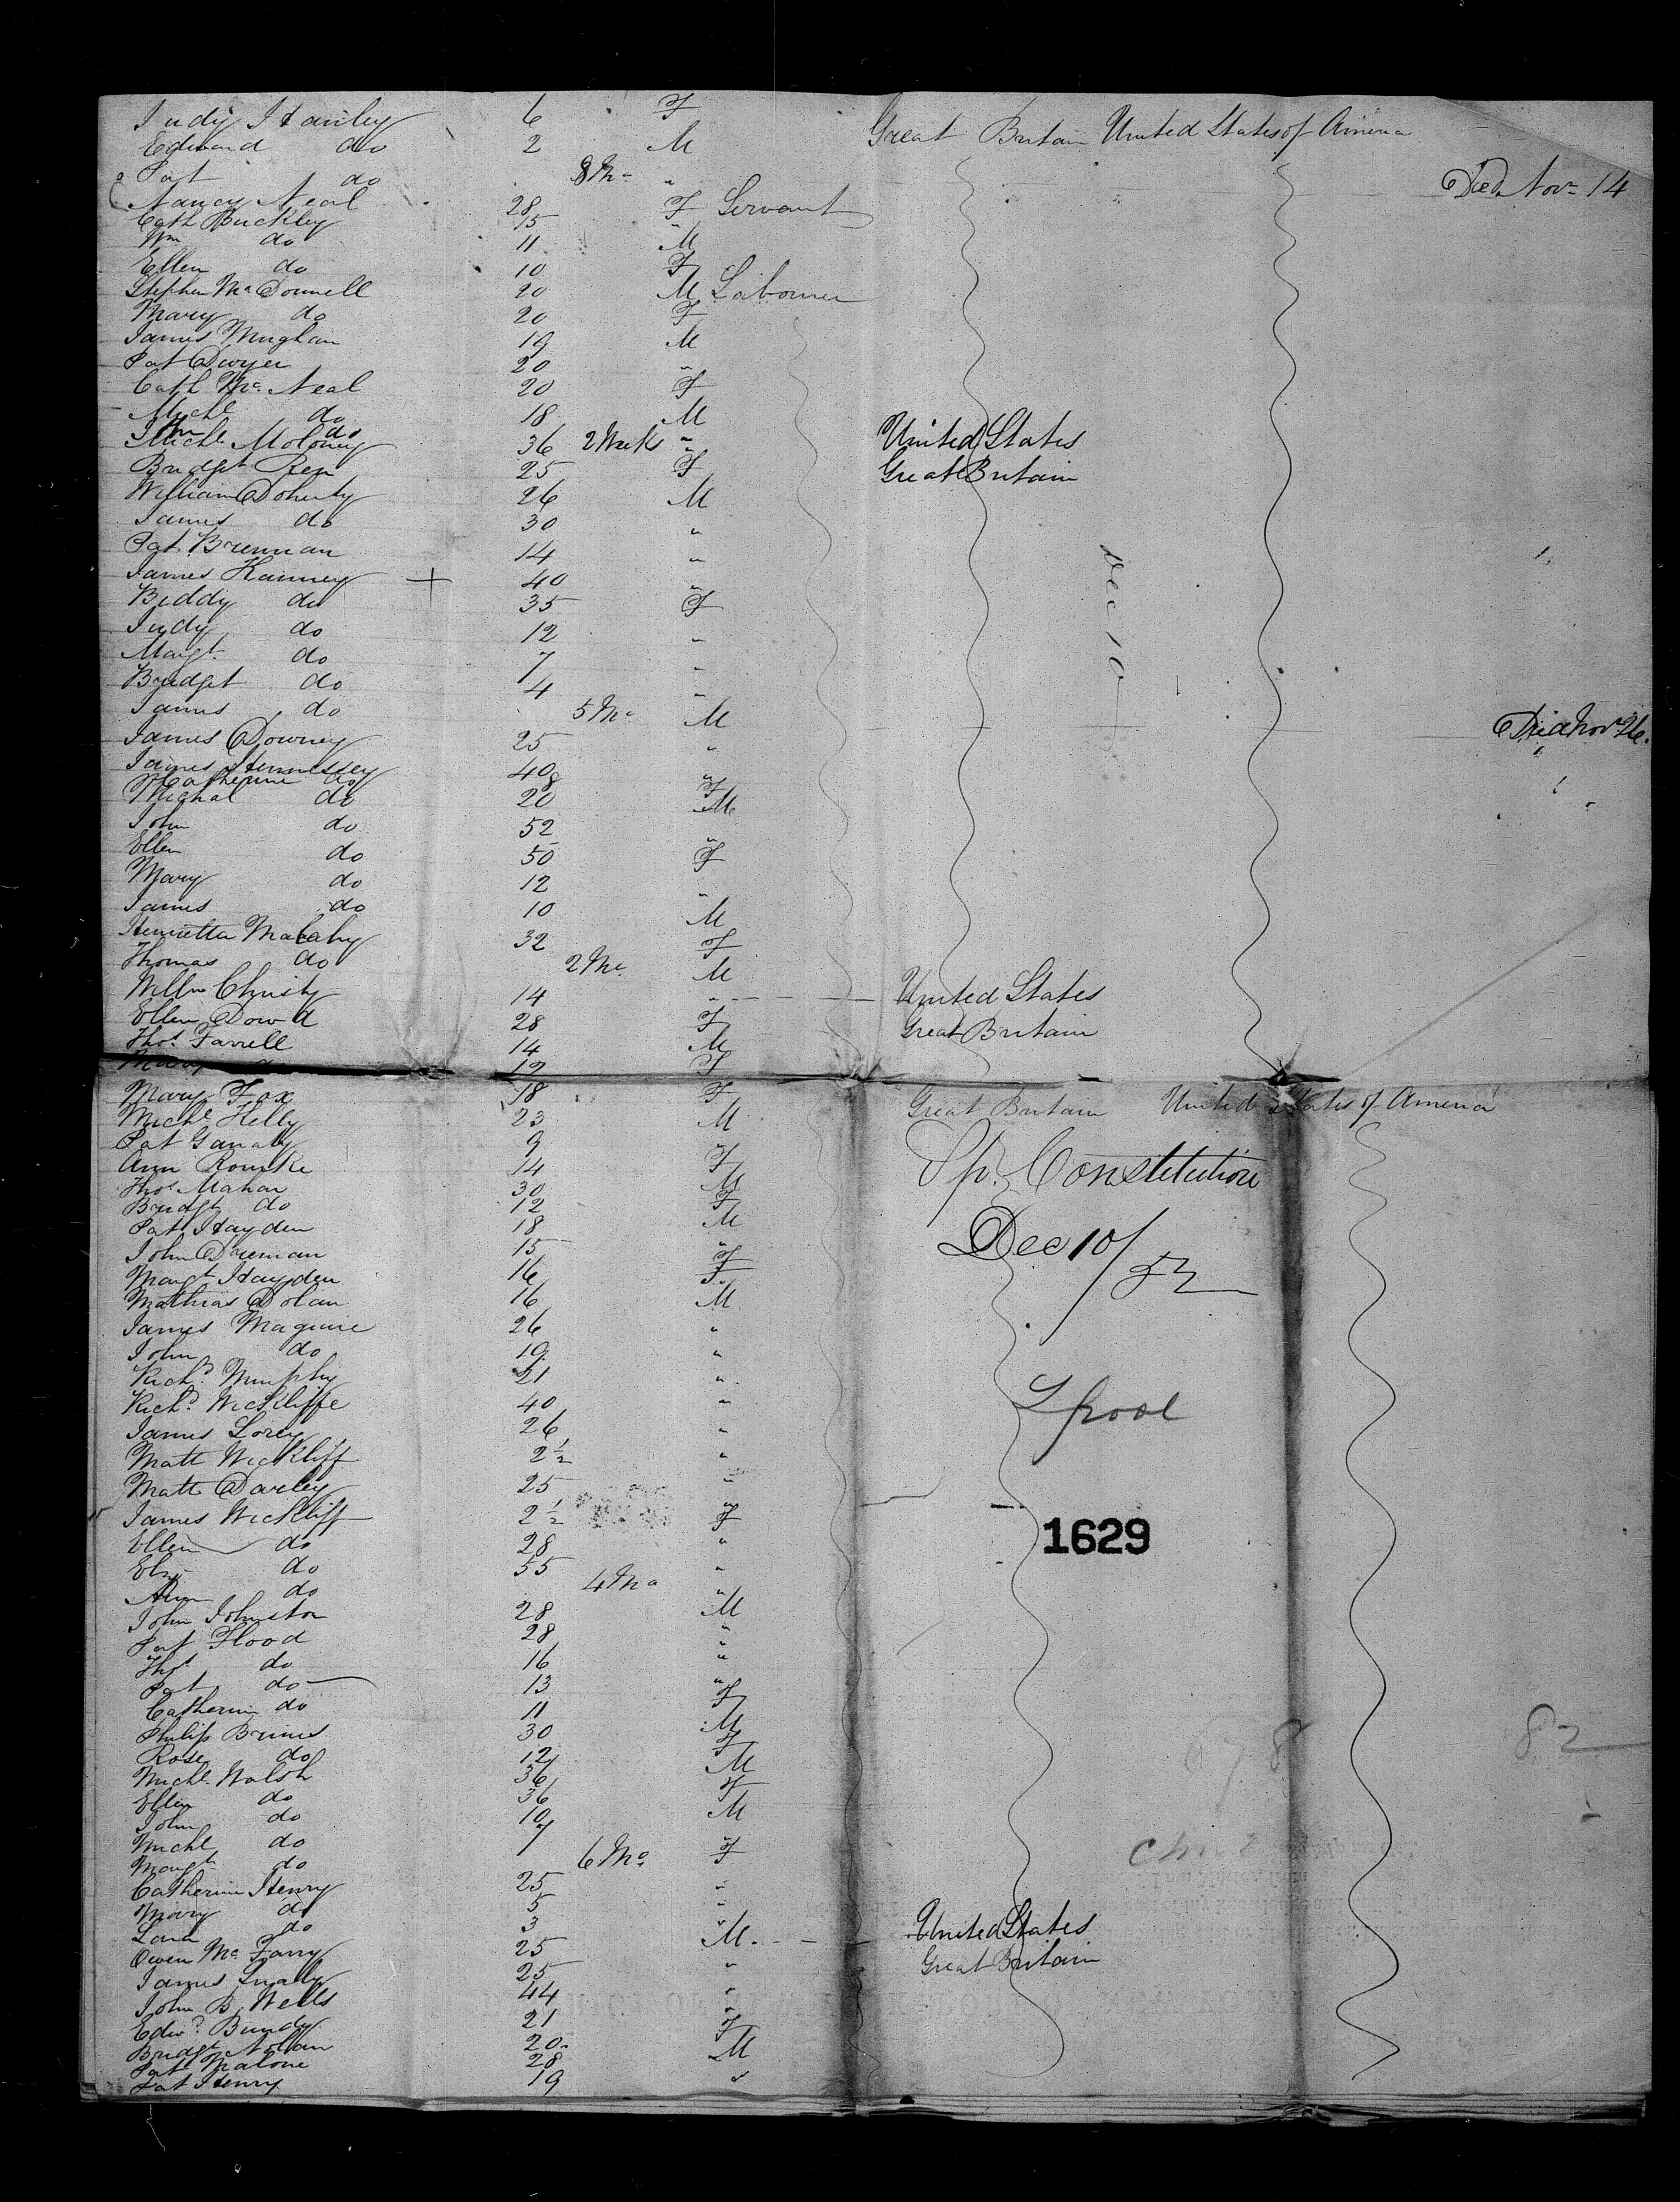 Judy Hanley 6 F Great Britain United States of America
Edward do 2 M
Pat do 8 Mo " Died Nov 14
Nancy Neal 28 F Servant
Cath Buckley 15 "
Wm do 11 M
Ellen do 10 F
Stephen McDonnell 20 M Labourer
Mary do 20 F
James Mughan 19 M
Pat Dwyer 20 "
Cath McNeal 20 F
Michl do 18 M
do 2 Weeks " United States
Michl Moloney 36 Great Britain
Bridget Ren 25 F
William Doherty 26 M
James do 30 "
Pat Brennan 14 "
James Kanney + 40 "
Biddy do 35 F
Judy do 12 "
Margt do 7 "
Bridget do 4 "
James do 5 Mo M Died Nov 26.
James Downey 25 "
James Hennessey 40 "
Catherine do 8 F
Michal do 20 M
John do 52 "
Ellen do 50 F
Mary do 12 "
James do 10 M
Henrietta 32 F
Thomas do 2 Mo M
Willm Christy 14 " United States
Ellen Dowd 28 F Great Britain
Thos Farrell 14 M
Mary do 12 F
Dec 10
Mary Fox 18 F Great Britain United States of America
Michl Kelly 23 M
Pat 9 "
Ann Rourke 14 F
Thos Mahan 30 M
Bridgt do 12 F
Pat Hayden 18 M
John 15 "
Margt Hayden 16 F
Mathias Dolan 16 M
James Maguire 26 "
John do 19 "
Richd Murphy 21 "
Richd Wickliffe 40 "
James Lorey 26 "
Matt Wickliff 2½ "
Matt Darley 25 "
James Wickliff 2½ "
Ellen do 28 F
do 55 "
Ann do 4 Mo "
John Johnston 28 M
Pat Flood 28 "
Thos do 16 "
Pat do 13 "
Catherine do 11 F
Philip 30 M
Rose do 12 F
Michl Walsh 36 M
Ellen do 36 F
John do 10 M
Michl do 7 "
Margt do 6 Mo F
Catherine Henry 25 "
Mary do 5 "
do 3 "
Owen McFarry 25 M United States
James 25 " Great Britain
John B. Wells 44 "
Edwd Bundy 21 "
Bridgt Nolan 20 F
Pat Malone 28 M
Pat Henry 19 "
Sp. Constitution
Dec 10/52
Lpool
1629
678
82